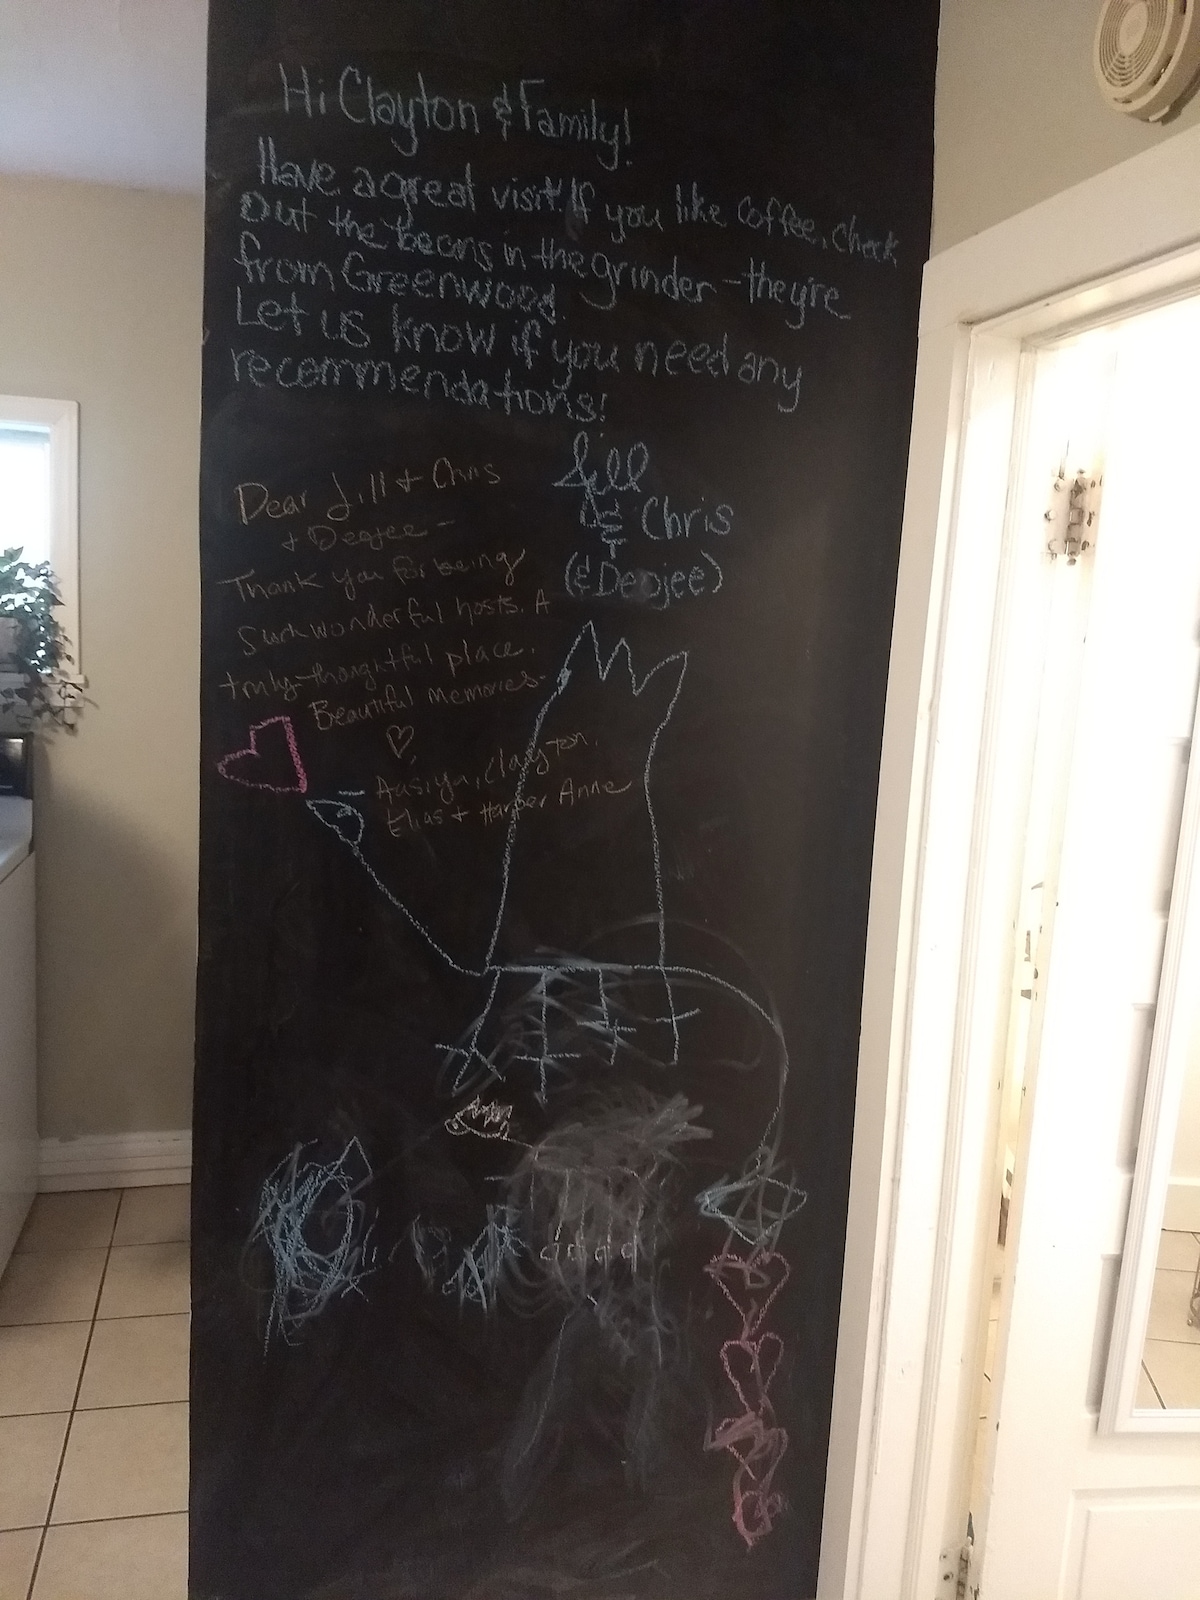 Hi Clayton & Family!
Have a great visit! If you like coffee, check
out the beans in the grinder - they're
from Greenwood.
Let us know if you need any
recommendations!
Jill
& Chris
(& Deojee)
Dear Jill + Chris
+ Deojee -
Thank you for being
such wonderful hosts. A
truly thoughtful place.
Beautiful memories -
- Aasiya, Clayton,
Elias + Harper Anne